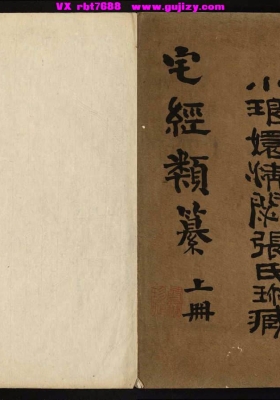 VX rbt7688 www.gujizy.com
小琅嬛清閟張氏珍藏
宅經類纂 上冊